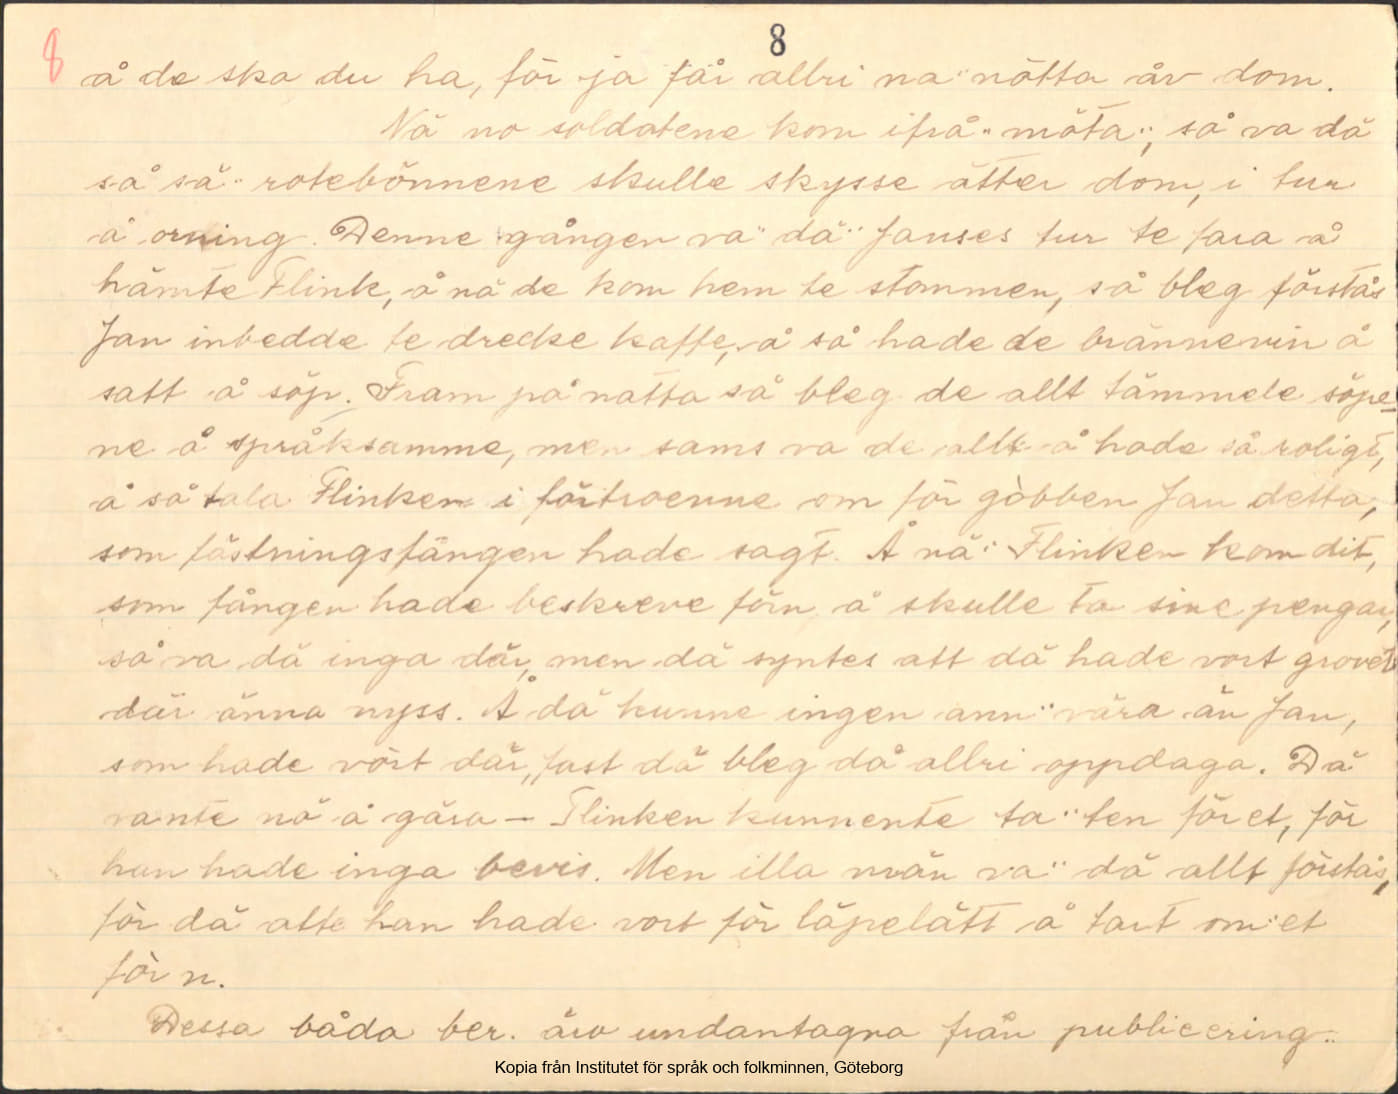 8
8
å de ska du ha, för ja får allri na nötta åv dom.
Nä no soldatene kom ifrå möta, så va dä
så sä rotebönnene skulle skysse ätter dom, i tur
å orning. Denne gången va dä Janses tur te fara å
hämte Flink, å nä de kom hem te stommen, så bleg förstås
Jan inbedde te drecke kaffe, å så hade de brännevin å
satt å söp. Fram på natta så bleg de allt tämmele söpe-
ne å språksamme, men sams va de allt å hade så roligt,
å så tala Flinken i förtroenne om för göbben Jan detta,
som fästningsfången hade sagt. Å nä Flinken kom dit,
som fången hade beskreve förn å skulle ta sine pengar,
så va dä inga där, men dä syntes att dä hade vort grovet
där änna nyss. Å dä kunne ingen ann vära än Jan,
som hade vört där, fast dä bleg då allri oppdaga. Dä
vante nö å göra — Flinken kunnente ta ten för et, för
han hade inga bevis. Men illa män va dä allt förstås,
för dä atte han hade vort för läpelätt å tart om et
för n.
Dessa båda ber. äro undantagna från publicering.
Kopia från Institutet för språk och folkminnen, Göteborg